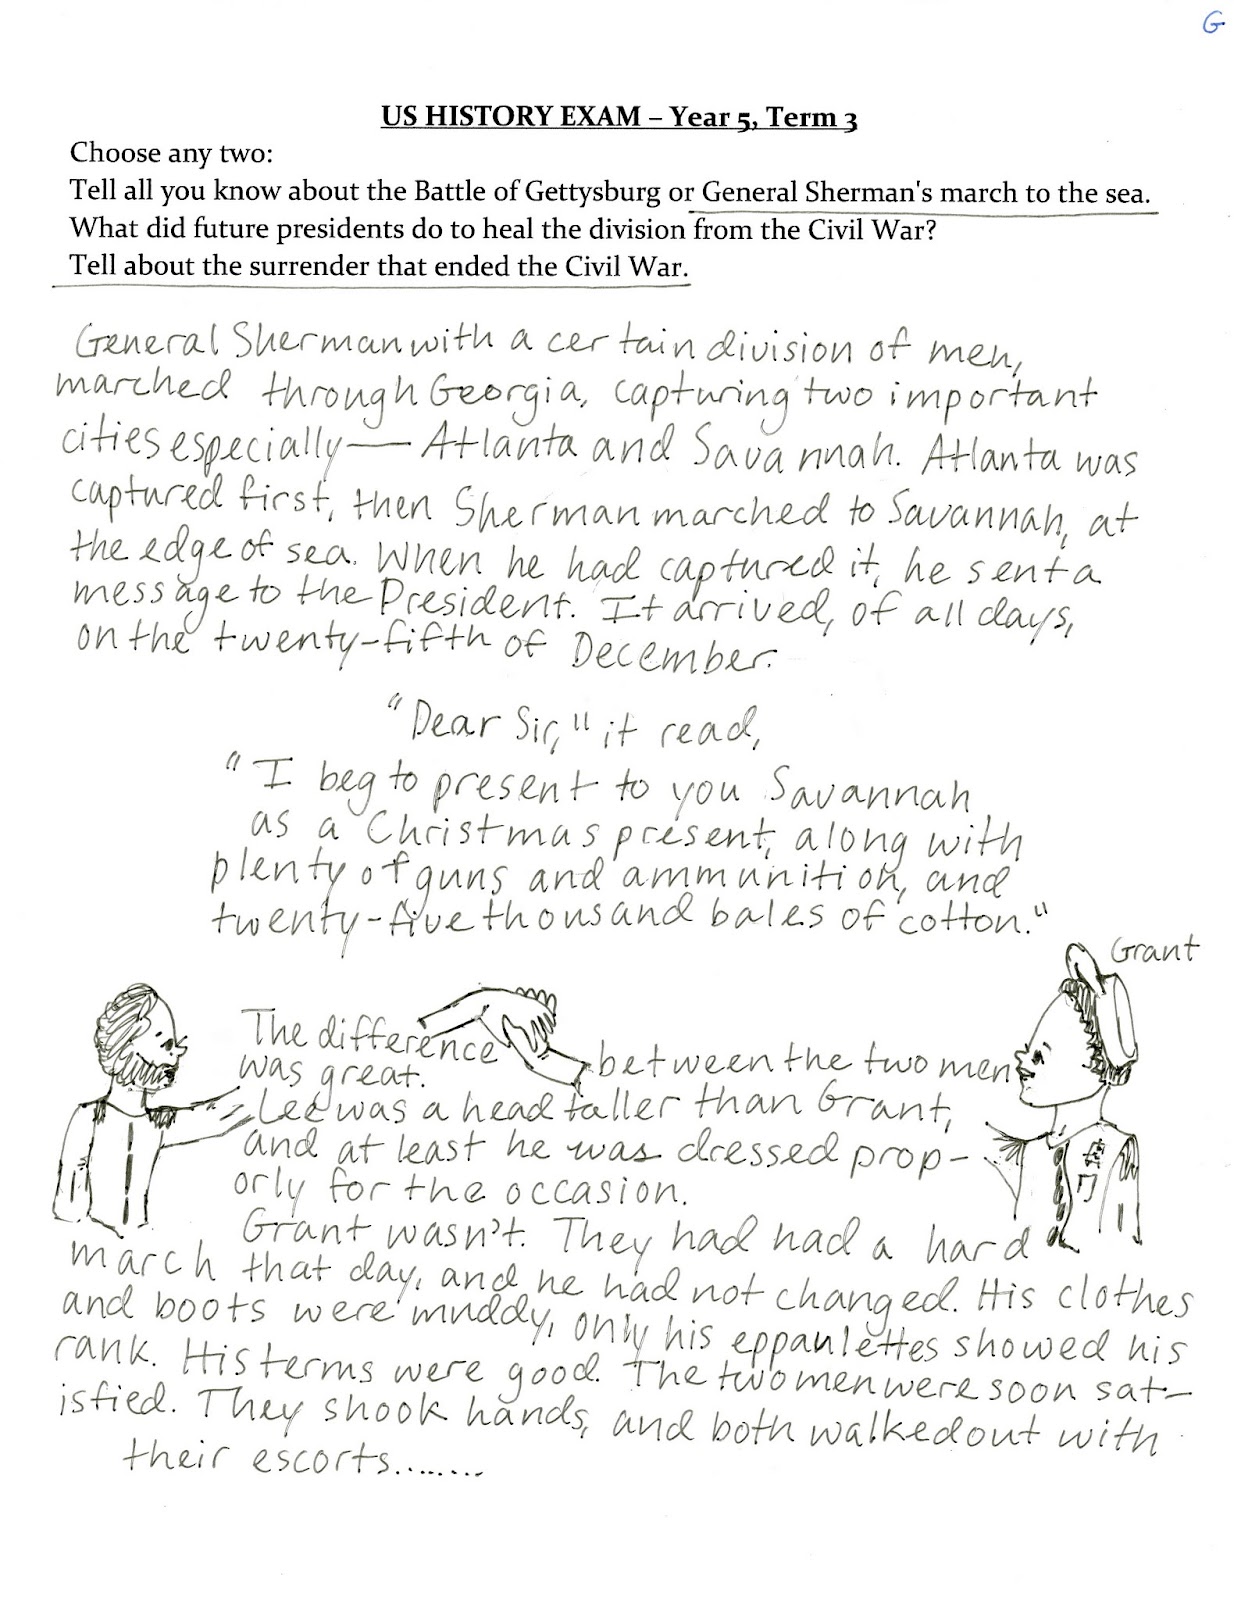 G
US HISTORY EXAM – Year 5, Term 3
Choose any two:
Tell all you know about the Battle of Gettysburg or General Sherman's march to the sea.
What did future presidents do to heal the division from the Civil War?
Tell about the surrender that ended the Civil War.
General Sherman with a certain division of men,
marched through Georgia, capturing two important
cities especially — Atlanta and Savannah. Atlanta was
captured first, then Sherman marched to Savannah, at
the edge of sea. When he had captured it, he sent a
message to the President. It arrived, of all days,
on the twenty-fifth of December.
"Dear Sir," it read,
"I beg to present to you Savannah
as a Christmas present, along with
plenty of guns and ammunition, and
twenty-five thousand bales of cotton."
Grant
The difference between the two men
was great.
Lee was a head taller than Grant,
and at least he was dressed prop-
orly for the occasion.
Grant wasn't. They had had a hard
march that day, and he had not changed. His clothes
and boots were muddy, only his eppaulettes showed his
rank. His terms were good. The two men were soon sat-
isfied. They shook hands, and both walked out with
their escorts........